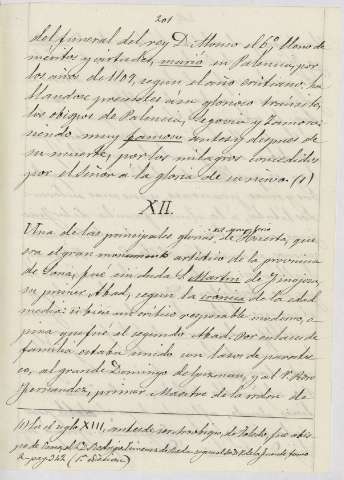 201
del funeral del rey D. Alonso el 6º, lleno de
méritos y virtudes, murió en Palencia, por
los años de 1109, segun el año cristiano, ha
llandose presentes á su glorioso transito,
los obispos de Palencia, Segovia y Zamora:
siendo muy famoso antes y despues de
su muerte, por los milagros concedidos
por el Señor á la gloria de su siervo. (1)
XII.
Una de las principales glorias de Huerta, que
sea el gran monumento artistico de la provincia
de Soria, fué sin duda S. Martin de Finojosa,
su primer Abad, segun la crónica de la edad
media: si bien un critico respetable moderno, o
pina que fué el segundo Abad. Por enlaces de
familia estaba unido con lazos de parentes
co, al grande Domingo de Guzman, y al P. Pedro
Fernandez, primer Maestre de la orden de
(1) En el siglo XIII, antes de ser Arzobispo de Toledo, fué obis
po de Osma, el D. Rodrigo Ximenez de Rada
2 - pag. 342 (1ª edicion)